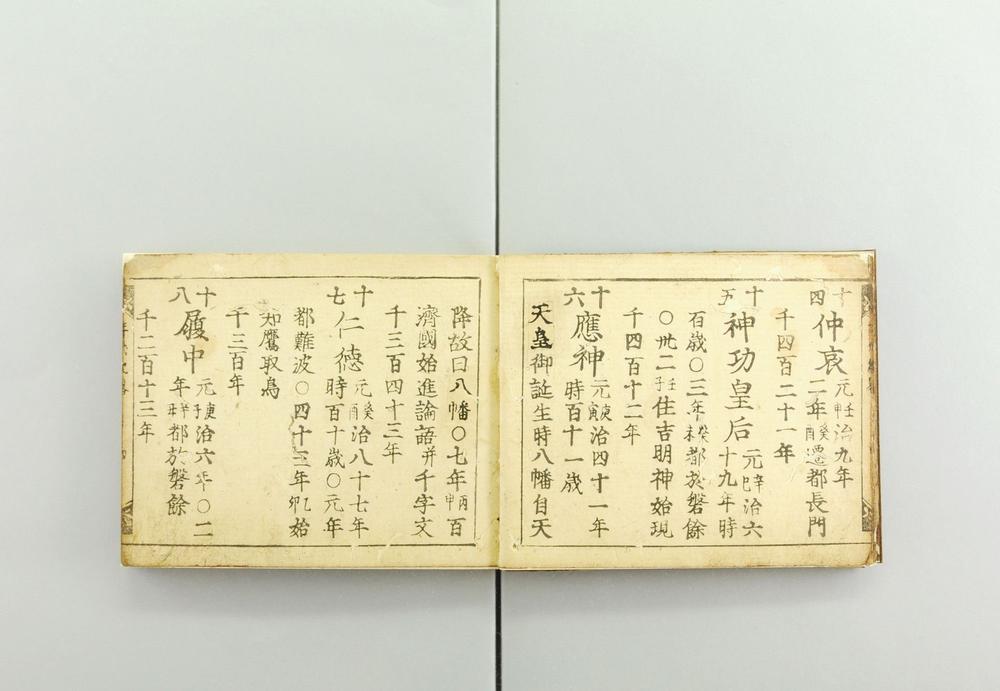 十四 仲哀 元壬申治九年
二年癸酉遷都長門
千四百二十一年
十五 神功皇后 元辛巳治六
十九年時
百歳〇三年癸未都於磐餘
〇卅二壬子住吉明神始現
千四百十二年
十六 應神 元庚寅治四十一年
時百十一歳
天皇御誕生時八幡自天
降故曰八幡〇七年丙申百
濟國始進論語并千字文
千三百四十三年
十七 仁德 元癸酉治八十七年
時百十歳〇元年
都難波〇四十三年乙卯始
知鷹取鳥
千三百年
十八 履中 元庚子治六年〇二
年辛丑都於磐餘
千二百十三年